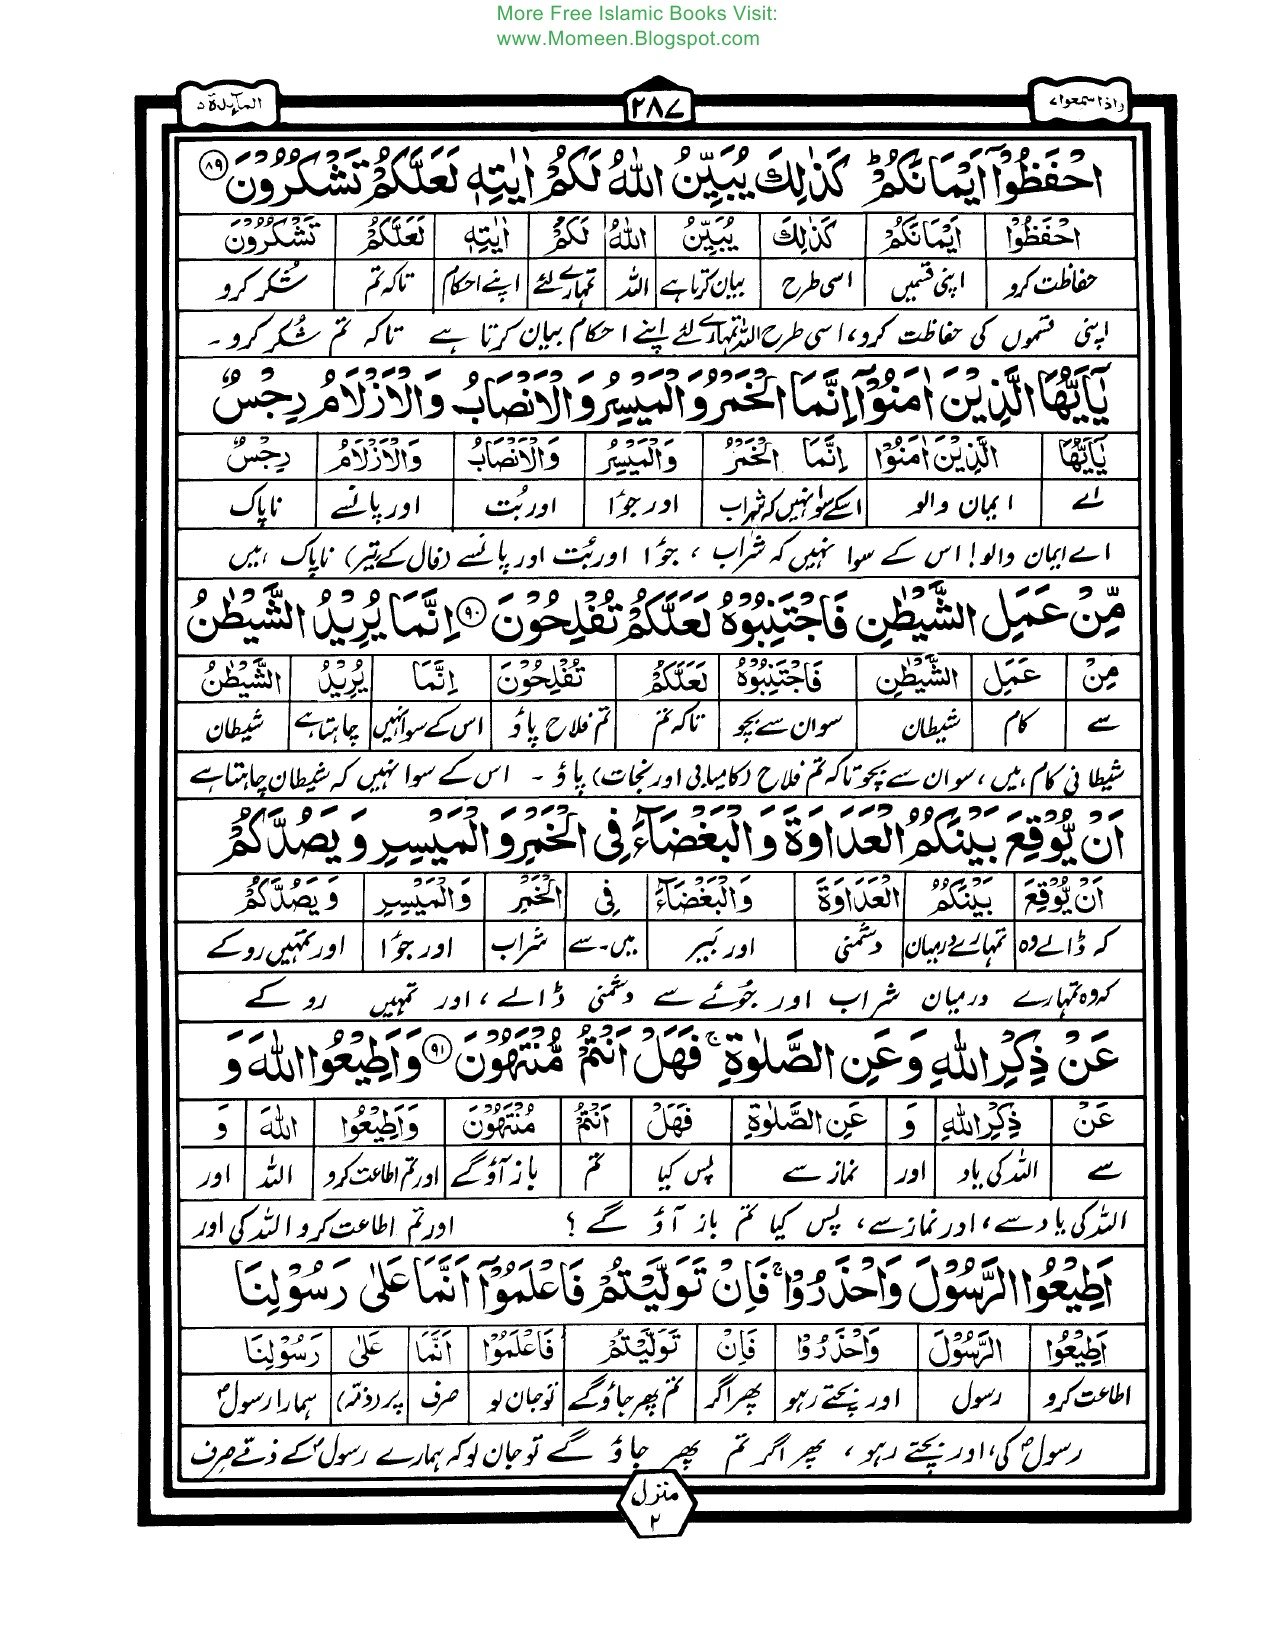 More Free Islamic Books Visit:
www.Momeen.Blogspot.com
واذا سمعوا ۷ ۲۸۷ المآئدة ۵
احْفَظُوْۤا اَیْمَانَكُمْ ؕ كَذٰلِكَ یُبَیِّنُ اللّٰهُ لَكُمْ اٰیٰتِهٖ لَعَلَّكُمْ تَشْكُرُوْنَ ۸۹
احْفَظُوْۤا اَیْمَانَكُمْ كَذٰلِكَ یُبَیِّنُ اللّٰهُ لَكُمْ اٰیٰتِهٖ لَعَلَّكُمْ تَشْكُرُوْنَ
حفاظت کرو اپنی قسمیں اسی طرح بیان کرتا ہے اللہ تمہارے لئے اپنے احکام تاکہ تم شُکر کرو
اپنی قسموں کی حفاظت کرو، اسی طرح اللہ تمہارے لئے اپنے احکام بیان کرتا ہے تاکہ تم شُکر کرو۔
یٰۤاَیُّهَا الَّذِیْنَ اٰمَنُوْۤا اِنَّمَا الْخَمْرُ وَالْمَیْسِرُ وَالْاَنْصَابُ وَالْاَزْلَامُ رِجْسٌ
یٰۤاَیُّهَا الَّذِیْنَ اٰمَنُوْۤا اِنَّمَا الْخَمْرُ وَالْمَیْسِرُ وَالْاَنْصَابُ وَالْاَزْلَامُ رِجْسٌ
اے ایمان والو اسکے سوا نہیں کہ شراب اور جوُا اور بُت اور پانسے ناپاک
اے ایمان والو! اس کے سوا نہیں کہ شراب، جوُا اور بُت اور پانسے (فال کے تیر) ناپاک ہیں
مِّنْ عَمَلِ الشَّیْطٰنِ فَاجْتَنِبُوْهُ لَعَلَّكُمْ تُفْلِحُوْنَ ۹۰ اِنَّمَا یُرِیْدُ الشَّیْطٰنُ
مِّنْ عَمَلِ الشَّیْطٰنِ فَاجْتَنِبُوْهُ لَعَلَّكُمْ تُفْلِحُوْنَ اِنَّمَا یُرِیْدُ الشَّیْطٰنُ
سے کام شیطان سو ان سے بچو تاکہ تم تم فلاح پاؤ اس کے سوا نہیں چاہتا ہے شیطان
شیطانی کام ہیں، سو ان سے بچو تاکہ تم فلاح (کامیابی اور نجات) پاؤ۔ اس کے سوا نہیں کہ شیطان چاہتا ہے
اَنْ یُّوْقِعَ بَیْنَكُمُ الْعَدَاوَةَ وَالْبَغْضَآءَ فِی الْخَمْرِ وَالْمَیْسِرِ وَیَصُدَّكُمْ
اَنْ یُّوْقِعَ بَیْنَكُمُ الْعَدَاوَةَ وَالْبَغْضَآءَ فِی الْخَمْرِ وَالْمَیْسِرِ وَیَصُدَّكُمْ
کہ ڈالے وہ تمہارے درمیان دشمنی اور بَیر میں۔سے شراب اور جوُا اور تمہیں روکے
کہ وہ تمہارے درمیان شراب اور جوُئے سے دشمنی ڈالے، اور تمہیں روکے
عَنْ ذِكْرِ اللّٰهِ وَعَنِ الصَّلٰوةِ ۚ فَهَلْ اَنْتُمْ مُّنْتَهُوْنَ ۹۱ وَاَطِیْعُوا اللّٰهَ وَ
عَنْ ذِكْرِ اللّٰهِ وَ عَنِ الصَّلٰوةِ فَهَلْ اَنْتُمْ مُّنْتَهُوْنَ وَاَطِیْعُوا اللّٰهَ وَ
سے اللہ کی یاد اور نماز سے پس کیا تم باز آؤ گے اور تم اطاعت کرو اللہ اور
اللہ کی یاد سے، اور نماز سے، پس کیا تم باز آؤ گے؟ اور تم اطاعت کرو اللہ کی اور
اَطِیْعُوا الرَّسُوْلَ وَاحْذَرُوْا ۚ فَاِنْ تَوَلَّیْتُمْ فَاعْلَمُوْۤا اَنَّمَا عَلٰی رَسُوْلِنَا
اَطِیْعُوا الرَّسُوْلَ وَاحْذَرُوْا فَاِنْ تَوَلَّیْتُمْ فَاعْلَمُوْۤا اَنَّمَا عَلٰی رَسُوْلِنَا
اطاعت کرو رسول اور بچتے رہو پھر اگر تم پھر جاؤ گے تو جان لو صرف پر (ذمّہ) ہمارا رسولؐ
رسولؐ کی، اور بچتے رہو، پھر اگر تم پھر جاؤ گے تو جان لو کہ ہمارے رسولؐ کے ذمّے صرف
منزل
۲